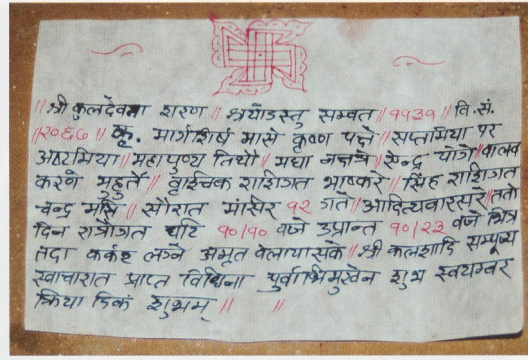 ॥ श्री कुलदेवता शरण ॥ श्रयोऽस्तु सम्वत ॥ ११३१ ॥ वि.सं.
॥ २०६७ ॥ कृ. मार्गाशिर्ष मासे कृष्ण पक्षे ॥ सप्तामिया पर
अष्टमिया ॥ महापुण्य तिथौ ॥ मघा नक्षत्रे ॥ ऐन्द्र योगे ॥ वालव
करणे मुहुर्ते ॥ वृश्चिक राशिगत भाष्करे ॥ सिंह राशिगत
चन्द्र मसि ॥ सौरात मासेर १२ गते ॥ आदित्यवारसरे ॥ ततो
दिन रात्रौगत घटि १०/१० वजे उप्रान्त १०/२३ वजे भित्र
तदा कर्कट लग्ने अमृत वेलायासके ॥ श्री कलशादि सम्पूज्य
स्वाचारात प्राप्त विधिना पुर्वाभिमुखेन शुभ स्वयम्वर
क्रिया दिकं शुभम् ॥ ॥